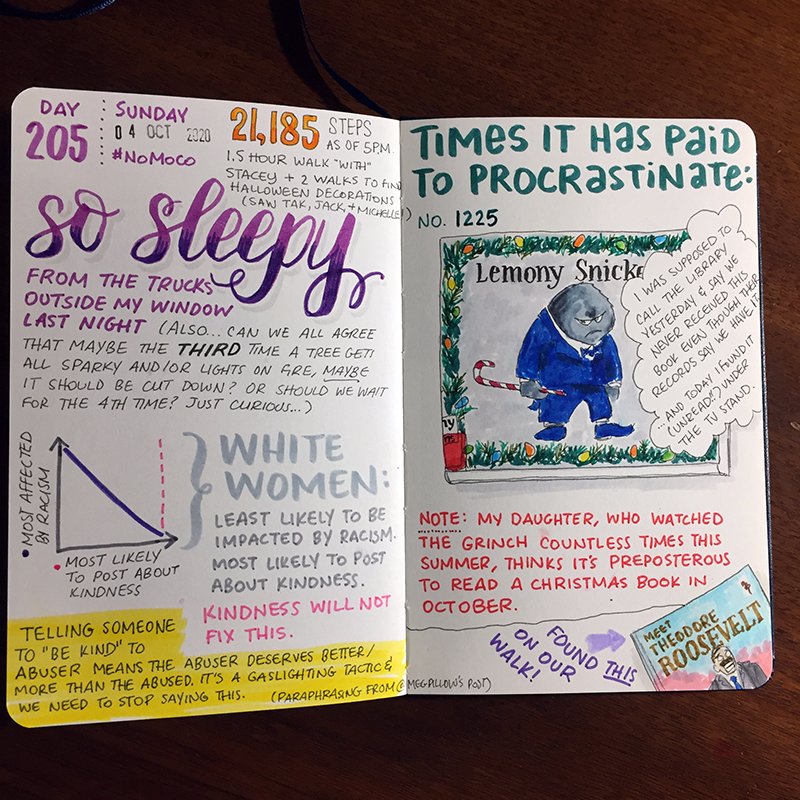 DAY
205
SUNDAY
04 OCT 2020
#NoMoCo
21,185 STEPS
AS OF 5PM.
1.5 HOUR WALK "WITH"
STACEY + 2 WALKS TO FIND
HALLOWEEN DECORATIONS
(SAW TAK, JACK, + MICHELLE!)
so sleepy
FROM THE TRUCKS
OUTSIDE MY WINDOW
LAST NIGHT (ALSO... CAN WE ALL AGREE
THAT MAYBE THE THIRD TIME A TREE GETS
ALL SPARKY AND/OR LIGHTS ON FIRE, MAYBE
IT SHOULD BE CUT DOWN? OR SHOULD WE WAIT
FOR THE 4TH TIME? JUST CURIOUS...)
MOST AFFECTED
BY RACISM
MOST LIKELY
TO POST ABOUT
KINDNESS
WHITE
WOMEN:
LEAST LIKELY TO BE
IMPACTED BY RACISM.
MOST LIKELY TO POST
ABOUT KINDNESS.
KINDNESS WILL NOT
FIX THIS.
TELLING SOMEONE
TO "BE KIND" TO
ABUSER MEANS THE ABUSER DESERVES BETTER/
MORE THAN THE ABUSED. IT'S A GASLIGHTING TACTIC &
WE NEED TO STOP SAYING THIS. (PARAPHRASING FROM @MEGALLOW'S POST)
TIMES IT HAS PAID
TO PROCRASTINATE:
NO. 1225
Lemony Snicke
I WAS SUPPOSED TO
CALL THE LIBRARY
YESTERDAY & SAY WE
NEVER RECEIVED THIS
BOOK EVEN THOUGH THEIR
RECORDS SAY WE HAVE IT
...AND TODAY I FOUND IT
(UNREAD!!) UNDER
THE TV STAND.
NOTE: MY DAUGHTER, WHO WATCHED
THE GRINCH COUNTLESS TIMES THIS
SUMMER, THINKS IT'S PREPOSTEROUS
TO READ A CHRISTMAS BOOK IN
OCTOBER.
FOUND THIS
ON OUR
WALK!
MEET
THEODORE
ROOSEVELT